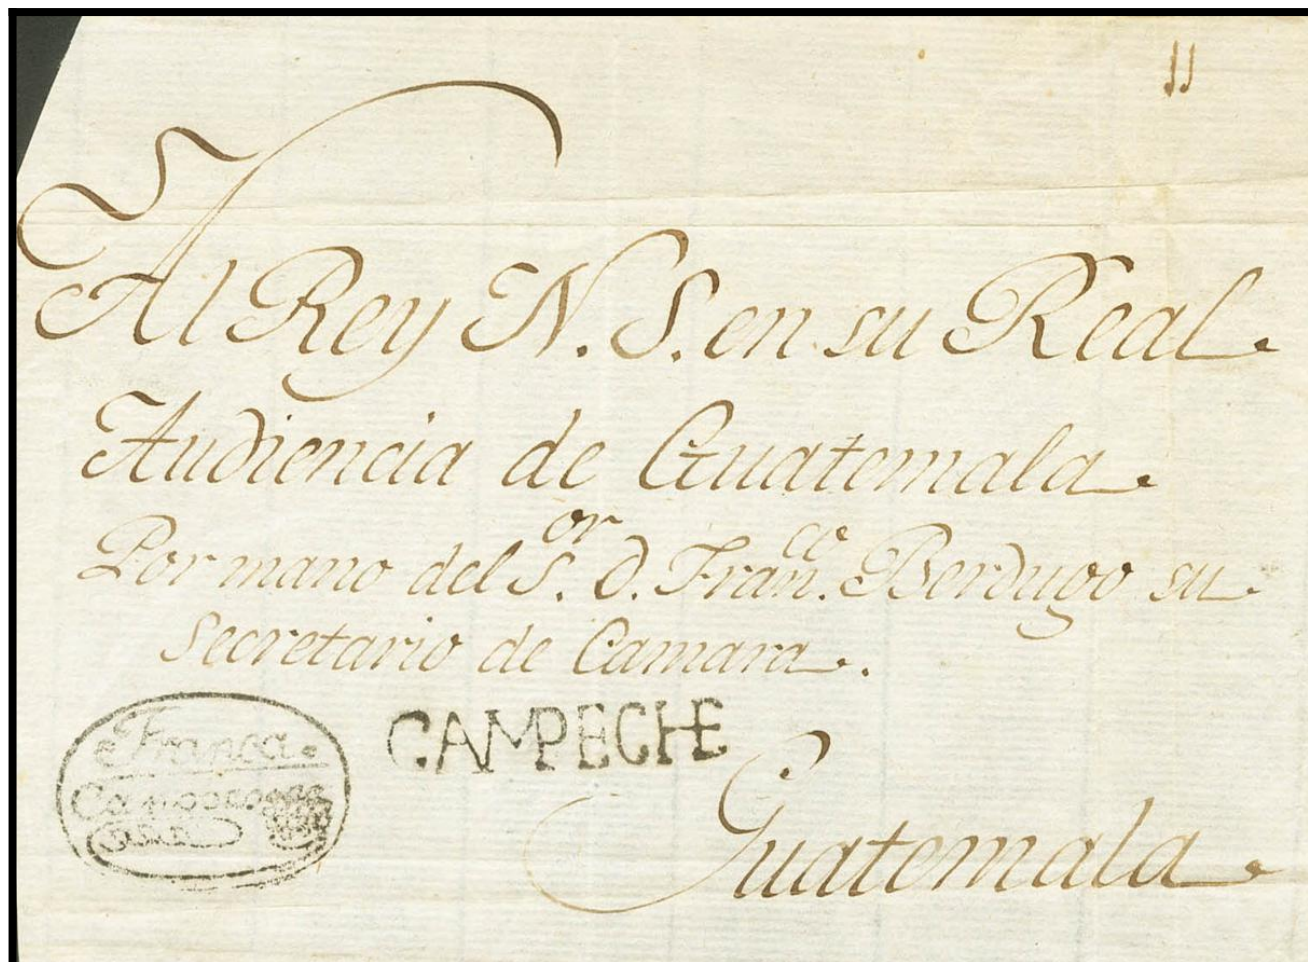 Al Rey N. S. en su Real
Audiencia de Guatemala
Por mano del S.or D. Fran.co Berdugo su
Secretario de Camara.
Franca
CAMPECHE
Guatemala